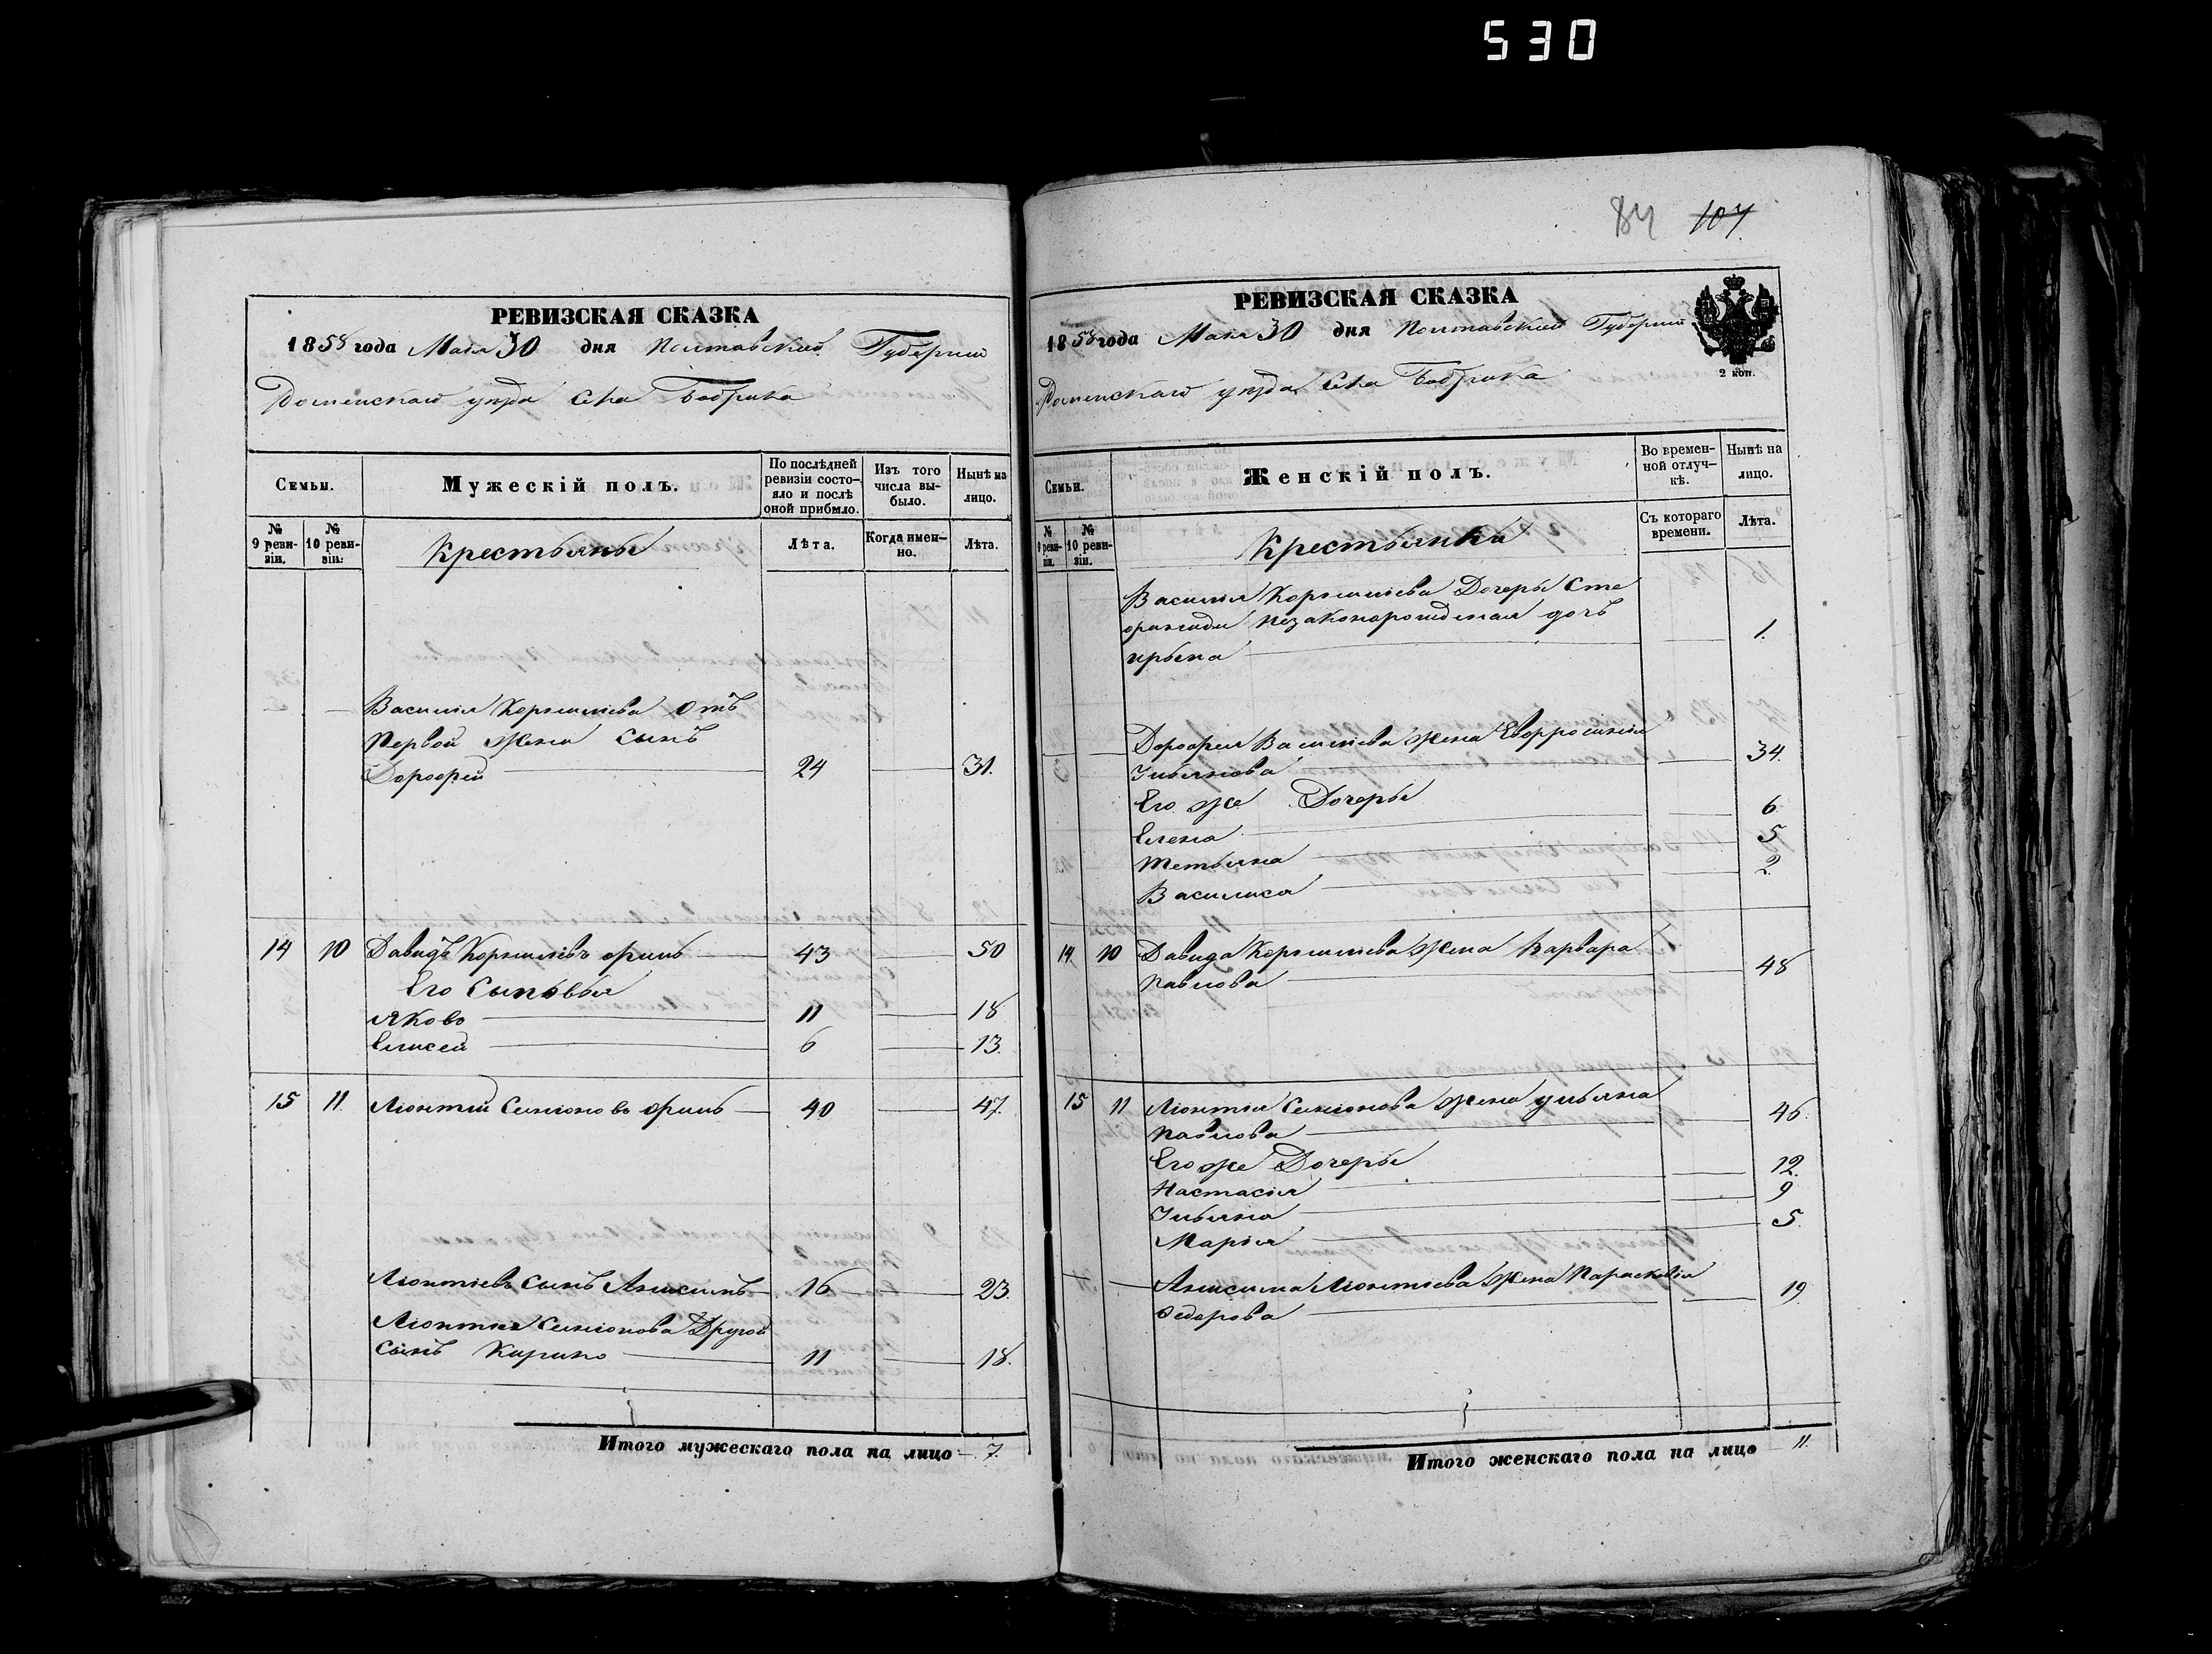 530
84 107
РЕВИЗСКАЯ СКАЗКА
1858 года Маія 30 дня Полтавской Губерніи
Роменскаго уезда Села Бобрика
Семьи.
Мужескій полъ.
По послѣдней ревизіи состояло и послѣ оной прибыло.
Изъ того числа выбыло.
Нынѣ на лицо.
№ 9 ревизіи.
№ 10 ревизіи.
Крестьяны
Лѣта.
Когда именно.
Лѣта.
Василія Корнилиева Отъ
Первой Жены сынъ
Дорофей 24 31.
14 10 Давидъ Корнилиевъ 43 50
Его Сыновья
Яковъ 11 18
Елисей 6 13.
15 11. Ліонтій Симіоновъ 40 47.
Ліонтіевъ Сынъ Анисимъ 16 23.
Ліонтія Симіонова Другой
Сынъ Кирило 11 18.
Итого мужескаго пола на лицо 7.
РЕВИЗСКАЯ СКАЗКА
1858 года Маія 30 дня Полтавской Губерніи
2 коп.
Роменскаго уезда Села Бобрика
Семьи.
Женскій полъ.
Во временной отлучкѣ.
Нынѣ на лицо.
№ 9 ревизіи.
№ 10 ревизіи.
Крестьянки
Съ котораго времени.
Лѣта.
Василія Корнилиева Дочеры Сте
фаниды незаконорожденая дочь
ирына 1.
Дорофея Василиева Жена Евфросинія
Ильянова 34.
Его же Дочеры
Елена 6
Тетьяна 5
Василиса 2
14 10 Давида Корнилиева Жена Варвара
Павлова 48
15 11 Ліонтія Симіонова Жена ульяна
Павлова 46.
Его же Дочеры
Настасія 12.
Ильяна 9
Марія 5.
Анисима Ліонтіева Жена Парасковія
Федорова 19.
Итого женскаго пола на лицо 11.